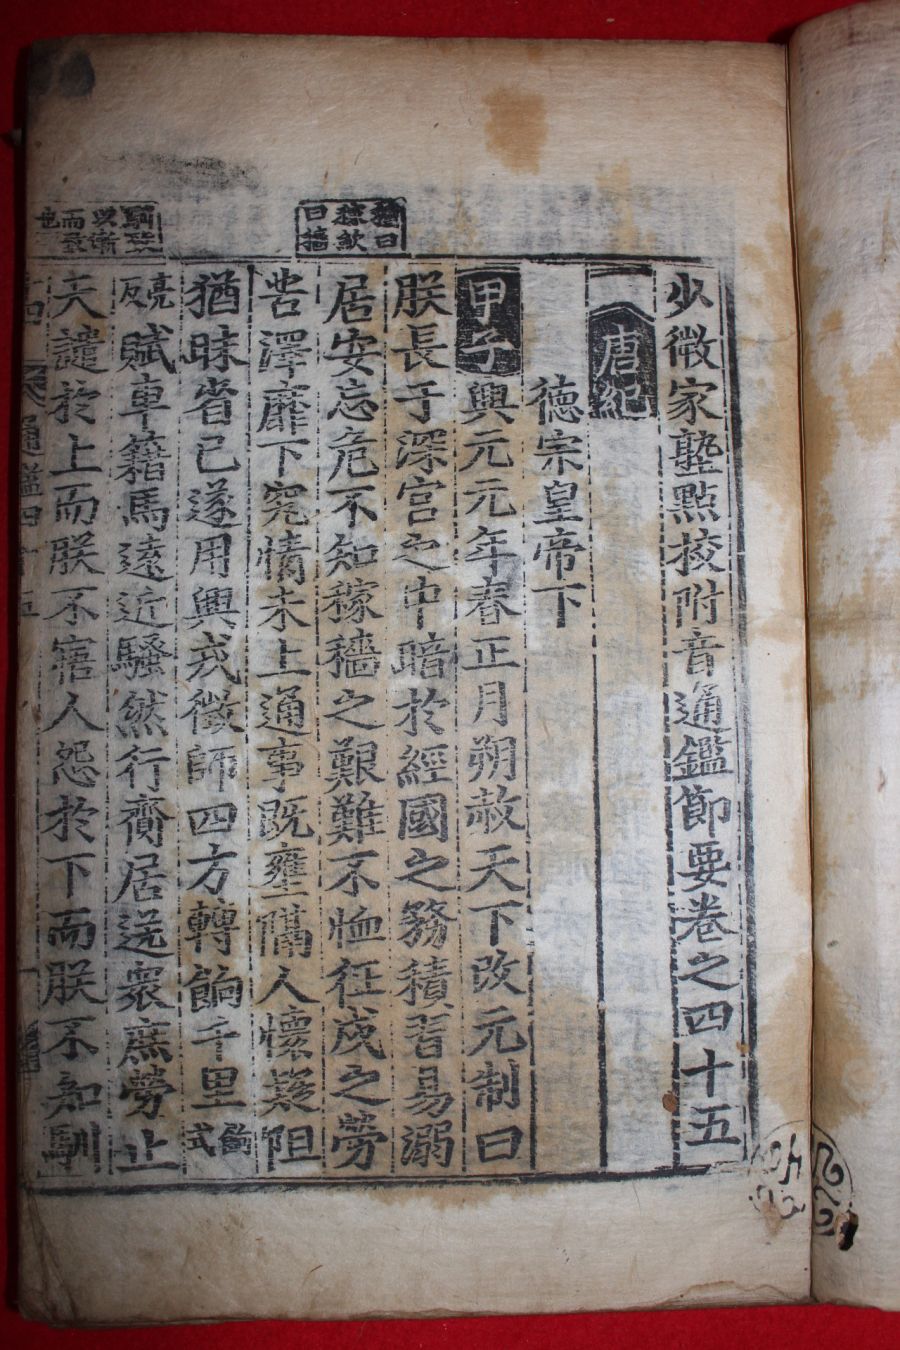 少微家塾點校附音通鑑節要卷之四十五
唐紀
德宗皇帝下
甲子興元元年春正月朔赦天下改元制曰
朕長于深宮之中暗於經國之務積習易溺
居安忘危不知稼穡之艱難不恤征戍之勞
苦澤靡下究情未上通事既壅隔人懷疑阻
猶昧省已遂用興戎徵師四方轉餉千里餉式
亮反賦車籍馬遠近騷然行賫居送衆庶勞止
天譴於上而朕不寤人怨於下而朕不知馴
種曰
稼歛
曰穡
以漸
而至
也
通鑑四十五